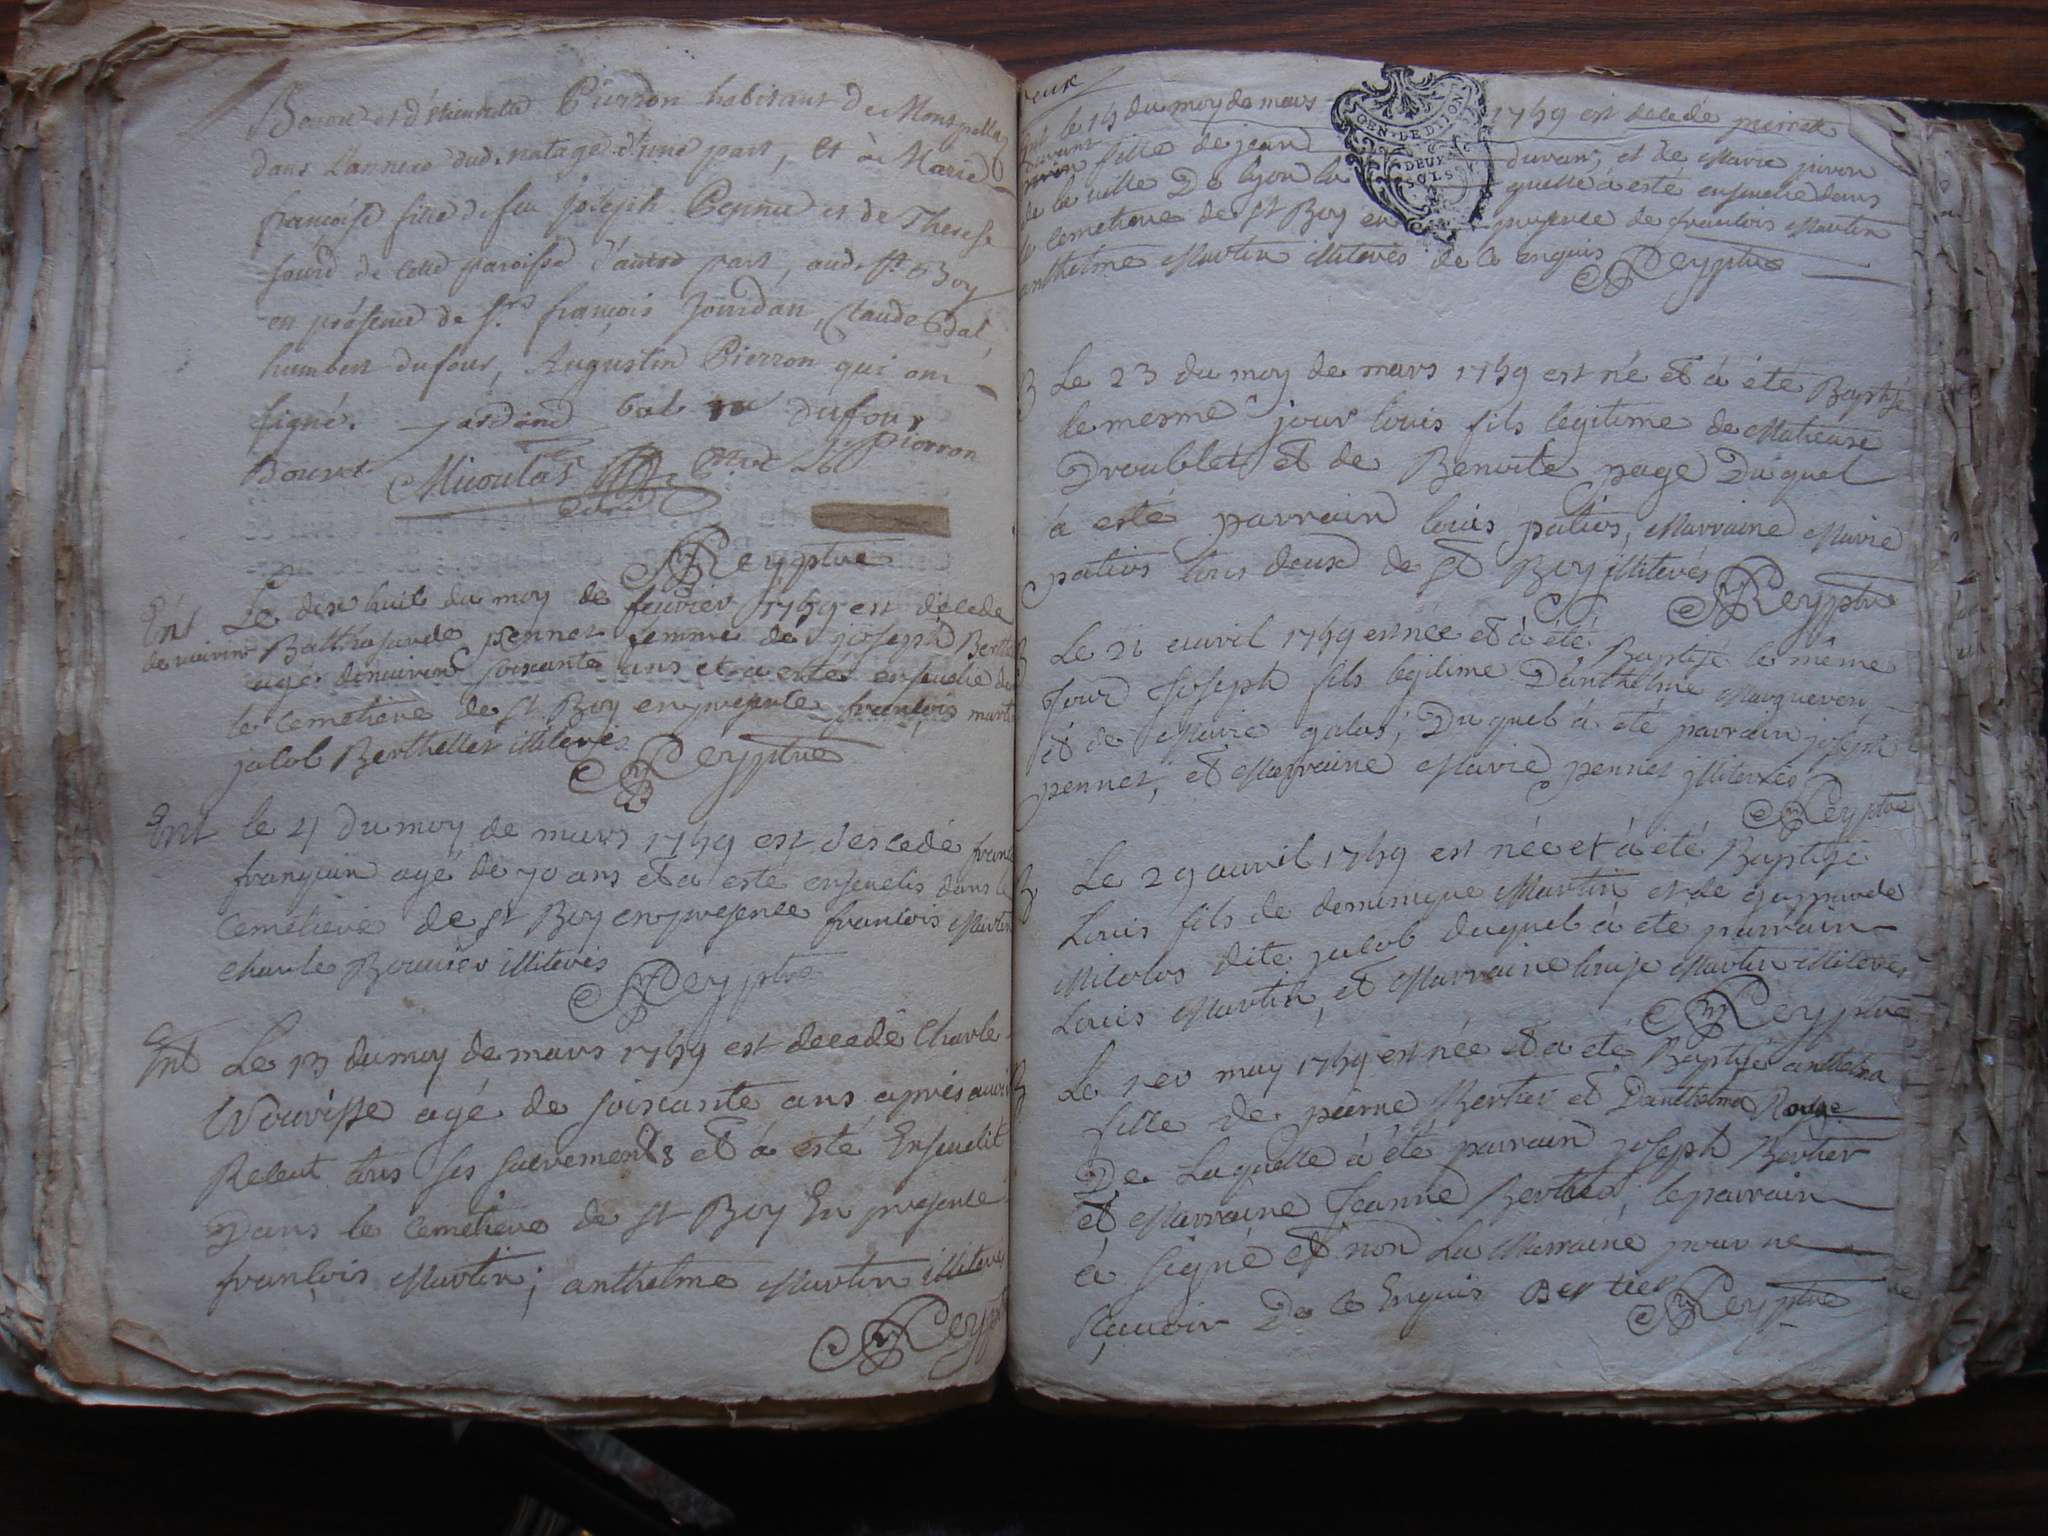 Bouvet et d'étiennette Pierron habitant de Montpellaz
dans l'annexe dud. natage d'une part, et à Marie
françoise fille de feu joseph Pennet et de Therese
jourd de cette paroisse d'autre part, aud. St Boy
en présence de Srs françois Jourdan, Claude Bal,
humbert dufour, Augustin Pierron qui ont
signé. jordand bal dufour
Bouvet Micoulas Curé pierron
Rey ptre
Ent Le dixe huit du moy de feuvrier 1759 est décede
Balthasarde pennet femme de joseph Berthe
agé denuiron soixante ans et a esté enseuelie da
le cemetiere de st Boy en presente françois marti
jacob Berthellet illiterés
Rey ptre
Ent le 4 du moy de mars 1759 est descedé franc
franquin agé de 70 ans et a esté enseuelis dans le
cemetiere de st Boy en presence francois Martin
Charle Bouvier illiterés
Rey ptre
Ent Le 13 du moy de mars 1759 est decedé Charle
agé de soixante ans apres auoir
Receut tous ses sacrements et à esté Enseuelit
Dans le cemetiere de st Boy En presence
françois Martin; anthelme Martin illiterés
Rey ptre
GEN. DE DIJON
DEUX
SOLS
Ent le 15 du moy de mars 1759 est decedé pierrete
durant
fille de jean durant, et de Marie
de la ville De lyon la quelle à esté enseuelie dans
le cemetiere de st Boy en presence de francois Martin
anthelme Martin illiterés de ce enquis Rey ptre
B Le 23 du moy de mars 1759 est né et à été Baptisé
le mesme jour louis fils legitime de Matieure
Droublet et de Benoite page Du quel
à esté parrain louis patios, Marraine Marie
patios tous deux de st Boy illiterés
Rey ptre
B Le 21 auril 1759 est née et à été Baptisé le même
Jour Joseph fils legitime D'anthelme Margueron,
et de Marie galas; Du quel à été parrain joseph
pennet, et Marraine Marie pennet illiterés
Rey ptre
B Le 29 auril 1759 est née et à été Baptisé
Louis fils de dominique Martin et de gasparde
Micolas dite jacob duquel à été parrain
Louis Martin, et Marraine louise Martin illiterés
Rey ptre
B Le 1er may 1759 est née et à été Baptisé anthelma
fille de pierre Bertier et D'anthelma Rouge
De Laquelle à été parrain joseph Bertier
et Marraine Jeanne Bertier, le parrain
à signé et non La Marraine pour ne
sçauoir De ce Enquis Bertier Rey ptre